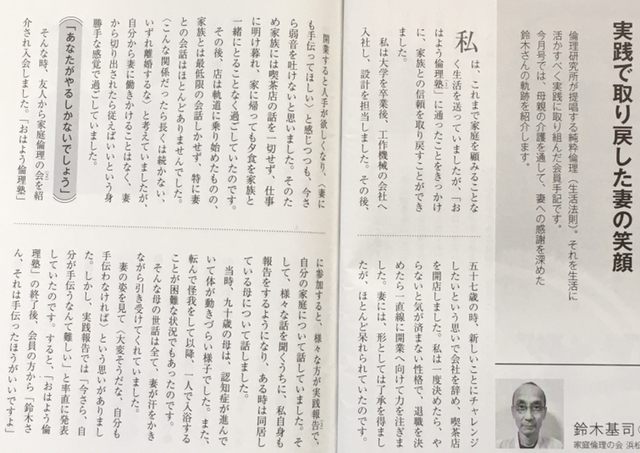 実践で取り戻した妻の笑顔
倫理研究所が提唱する純粋倫理（生活法則）。それを生活に
活かすべく実践に取り組んだ会員手記です。
今月号では、母親の介護を通して、妻への感謝を深めた
鈴木さんの軌跡を紹介します。
鈴木基司
家庭倫理の会 浜松
私は、これまで家庭を顧みることな
く生活を送っていましたが、「お
はよう倫理塾」に通ったことをきっかけ
に、家族との信頼を取り戻すことができ
ました。
私は大学を卒業後、工作機械の会社へ
入社し、設計を担当しました。その後、
五十七歳の時、新しいことにチャレンジ
したいという思いで会社を辞め、喫茶店
を開店しました。私は一度決めたら、や
らないと気が済まない性格で、退職を決
めたら一直線に開業へ向けて力を注ぎま
した。妻には、形としては了承を得まし
たが、ほとんど呆れられていたのです。
開業すると人手が欲しくなり、〈妻に
も手伝ってほしい〉と感じつつも、今さ
ら弱音を吐けないと思いました。そのた
め家族には喫茶店の話を一切せず、仕事
に明け暮れ、家に帰っても夕食を家族と
一緒にとることなく過ごしていたのです。
その後、店は軌道に乗り始めたものの、
家族とは最低限の会話しかせず、特に妻
との会話はほとんどありませんでした。
〈こんな関係だったら長くは続かない、
いずれ離婚するな〉と考えていましたが、
自分から妻に働きかけることはなく、妻
から切り出されたら従えばいいという身
勝手な感覚で過ごしていました。
「あなたがやるしかないでしょう」
そんな時、友人から家庭倫理の会を紹
介され入会しました。「おはよう倫理塾」
に参加すると、様々な方が実践報告で、
自分の家庭について話していました。そ
して、様々な話を聞くうちに、私自身も
報告をするようになり、ある時は同居し
ている母について話しました。
当時、九十歳の母は、認知症が進んで
いて体が動きづらい様子でした。また、
転んで怪我をして以降、一人で入浴する
ことが困難な状況でもあったのです。
そんな母の世話は全て、妻が汗をかき
ながら引き受けてくれていました。
妻の姿を見て〈大変そうだな、自分も
手伝わなければ〉という思いがありまし
た。しかし、実践報告では「今さら、自
分が手伝うなんて難しい」と率直に発表
していたのです。すると、「おはよう倫
理塾」の終了後、会員の方から「鈴木さ
ん、それは手伝ったほうがいいですよ」